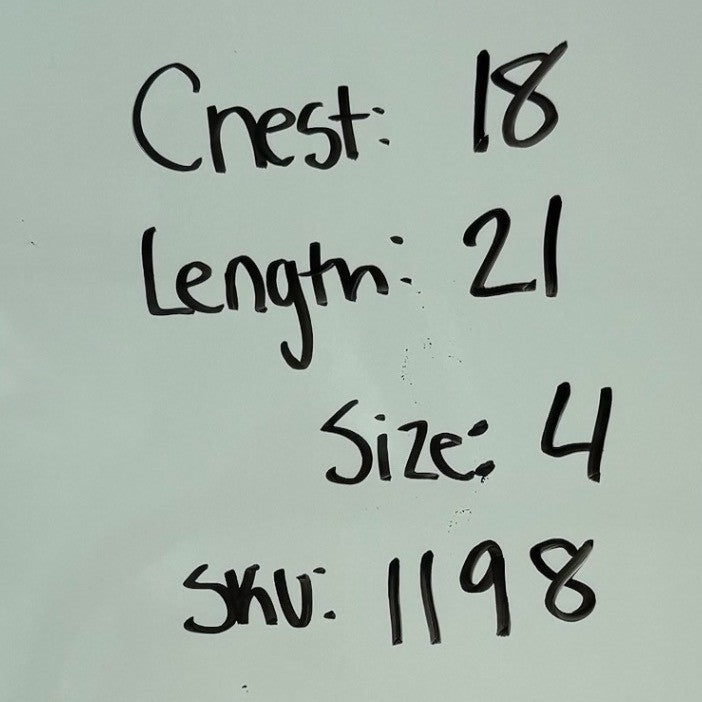 Chest: 18
Length: 21
Size: 4
SKU: 1198